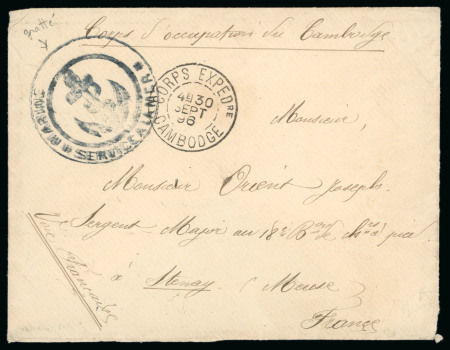 gratté
Corps d'occupation du Cambodge
MARINE SERVICE A LA MER
CORPS EXPEDRE
4E 30
SEPT
86
CAMBODGE
Monsieur,
Monsieur Orient Joseph
Sergent Major au 18e Bon de chrs à pied
à Stenay (Meuse)
Voie française
France